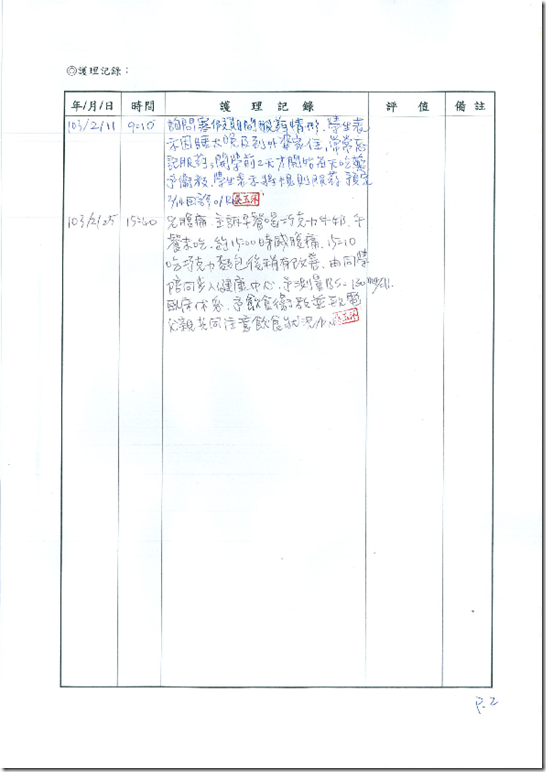 ◎護理記錄：
年/月/日 時間 護理記錄 評值 備註
103/2/11 9:10 詢問寒假期間服葯情形，學生表
示因睡太晚及到外婆家住，常常忘
記服葯，開學前2天才開始每天吃葯
予衛教，學生表示將規則服葯，預定
2/14回診
103/2/25 15:40 兒腹痛，主訴早餐喝巧克力牛奶，午
餐未吃，約15:00時感腹痛，15:10
吃巧克力麵包後稍有改善，由同學
陪同步入健康中心，予測量BS=150mg/dl
臥床休息，予飲食衛教並致電
父親共同注意飲食狀況
P.2